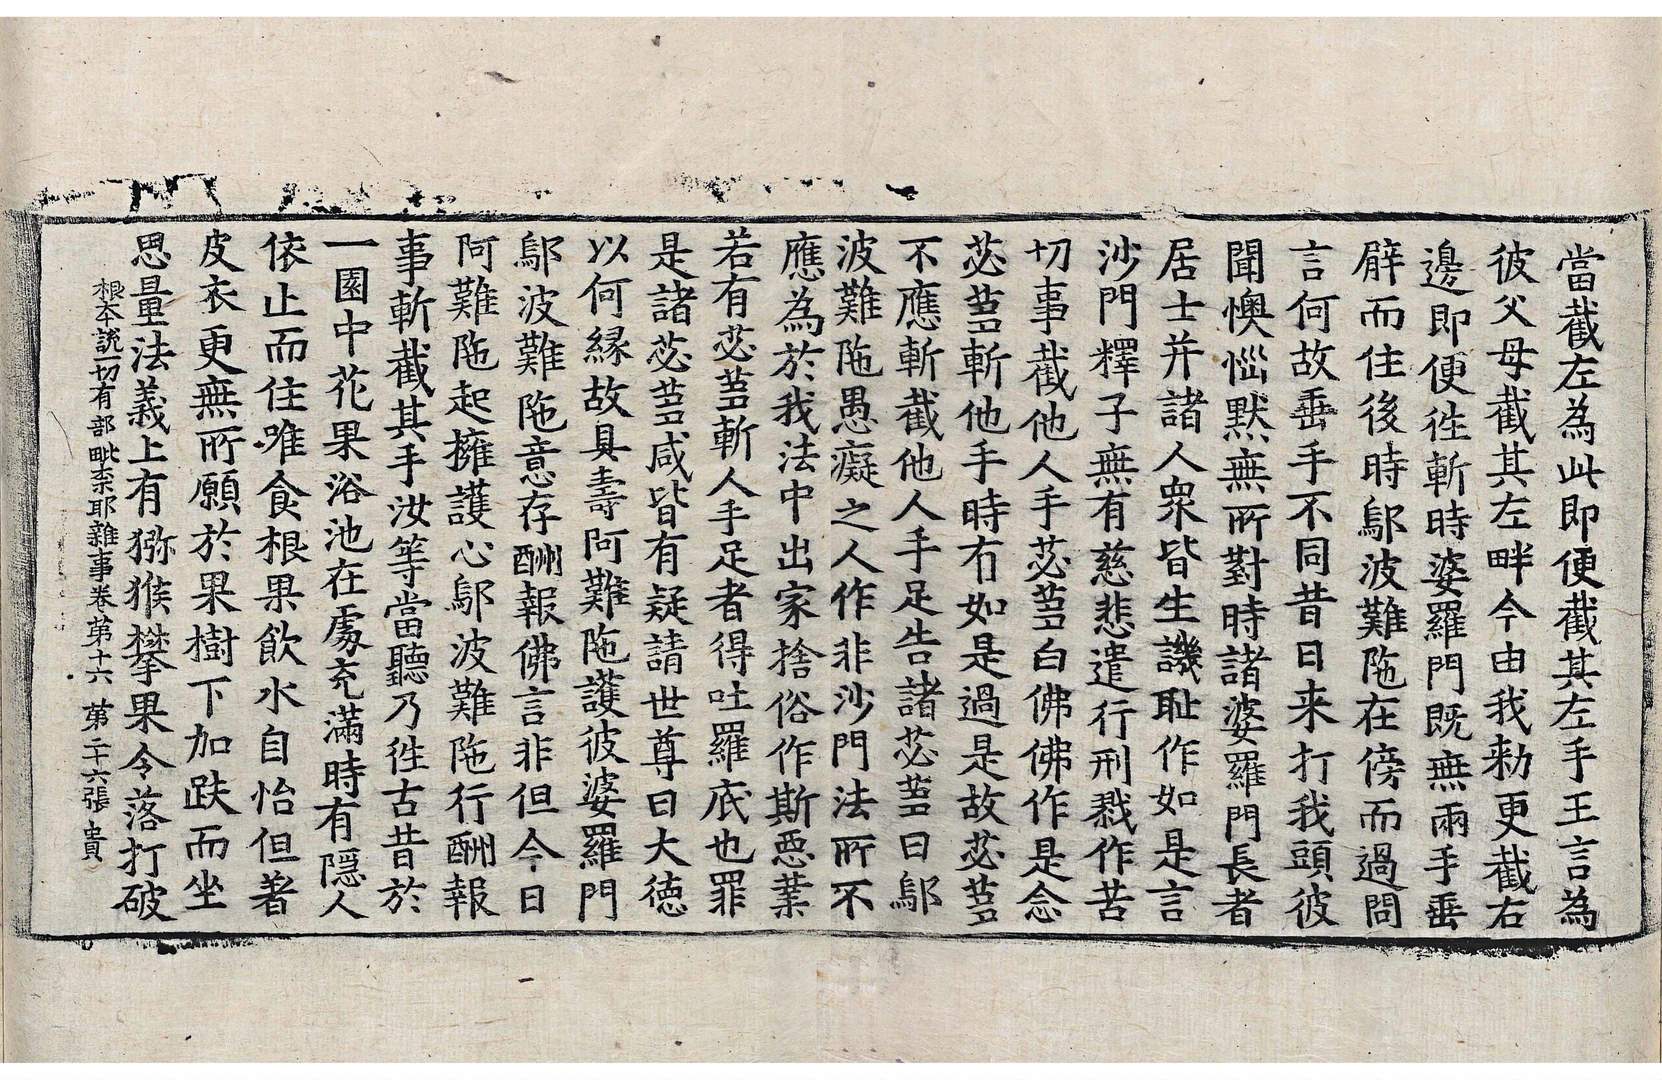 當截左為此即便截其左手王言為
彼父母截其左畔今由我勑更截右
邊即便徃斬時婆羅門既無兩手垂
臂而住後時鄔波難陁在傍而過問
言何故垂手不同昔日来打我頭彼
聞懊惱默無所對時諸婆羅門長者
居士并諸人衆皆生譏耻作如是言
沙門釋子無有慈悲遣行刑戮作苦
切事截他人手苾蒭白佛佛作是念
苾蒭斬他手時有如是過是故苾蒭
不應斬截他人手足告諸苾蒭曰鄔
波難陁愚癡之人作非沙門法所不
應為於我法中出家捨俗作斯惡業
若有苾蒭斬人手足者得吐羅底也罪
是諸苾蒭咸皆有疑請世尊曰大徳
以何縁故具壽阿難陁護彼婆羅門
鄔波難陁意存酬報佛言非但今日
阿難陁起擁護心鄔波難陁行酬報
事斬截其手汝等當聽乃徃古昔於
一園中花果浴池在處充滿時有隱人
依止而住唯食根果飲水自怡但著
皮衣更無所願於果樹下加趺而坐
思量法義上有獼猴攀果令落打破
根本說一切有部毗奈耶雜事卷第十六 第二十六張 貴